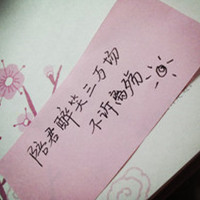 陪君醉笑三万场
不诉离殇